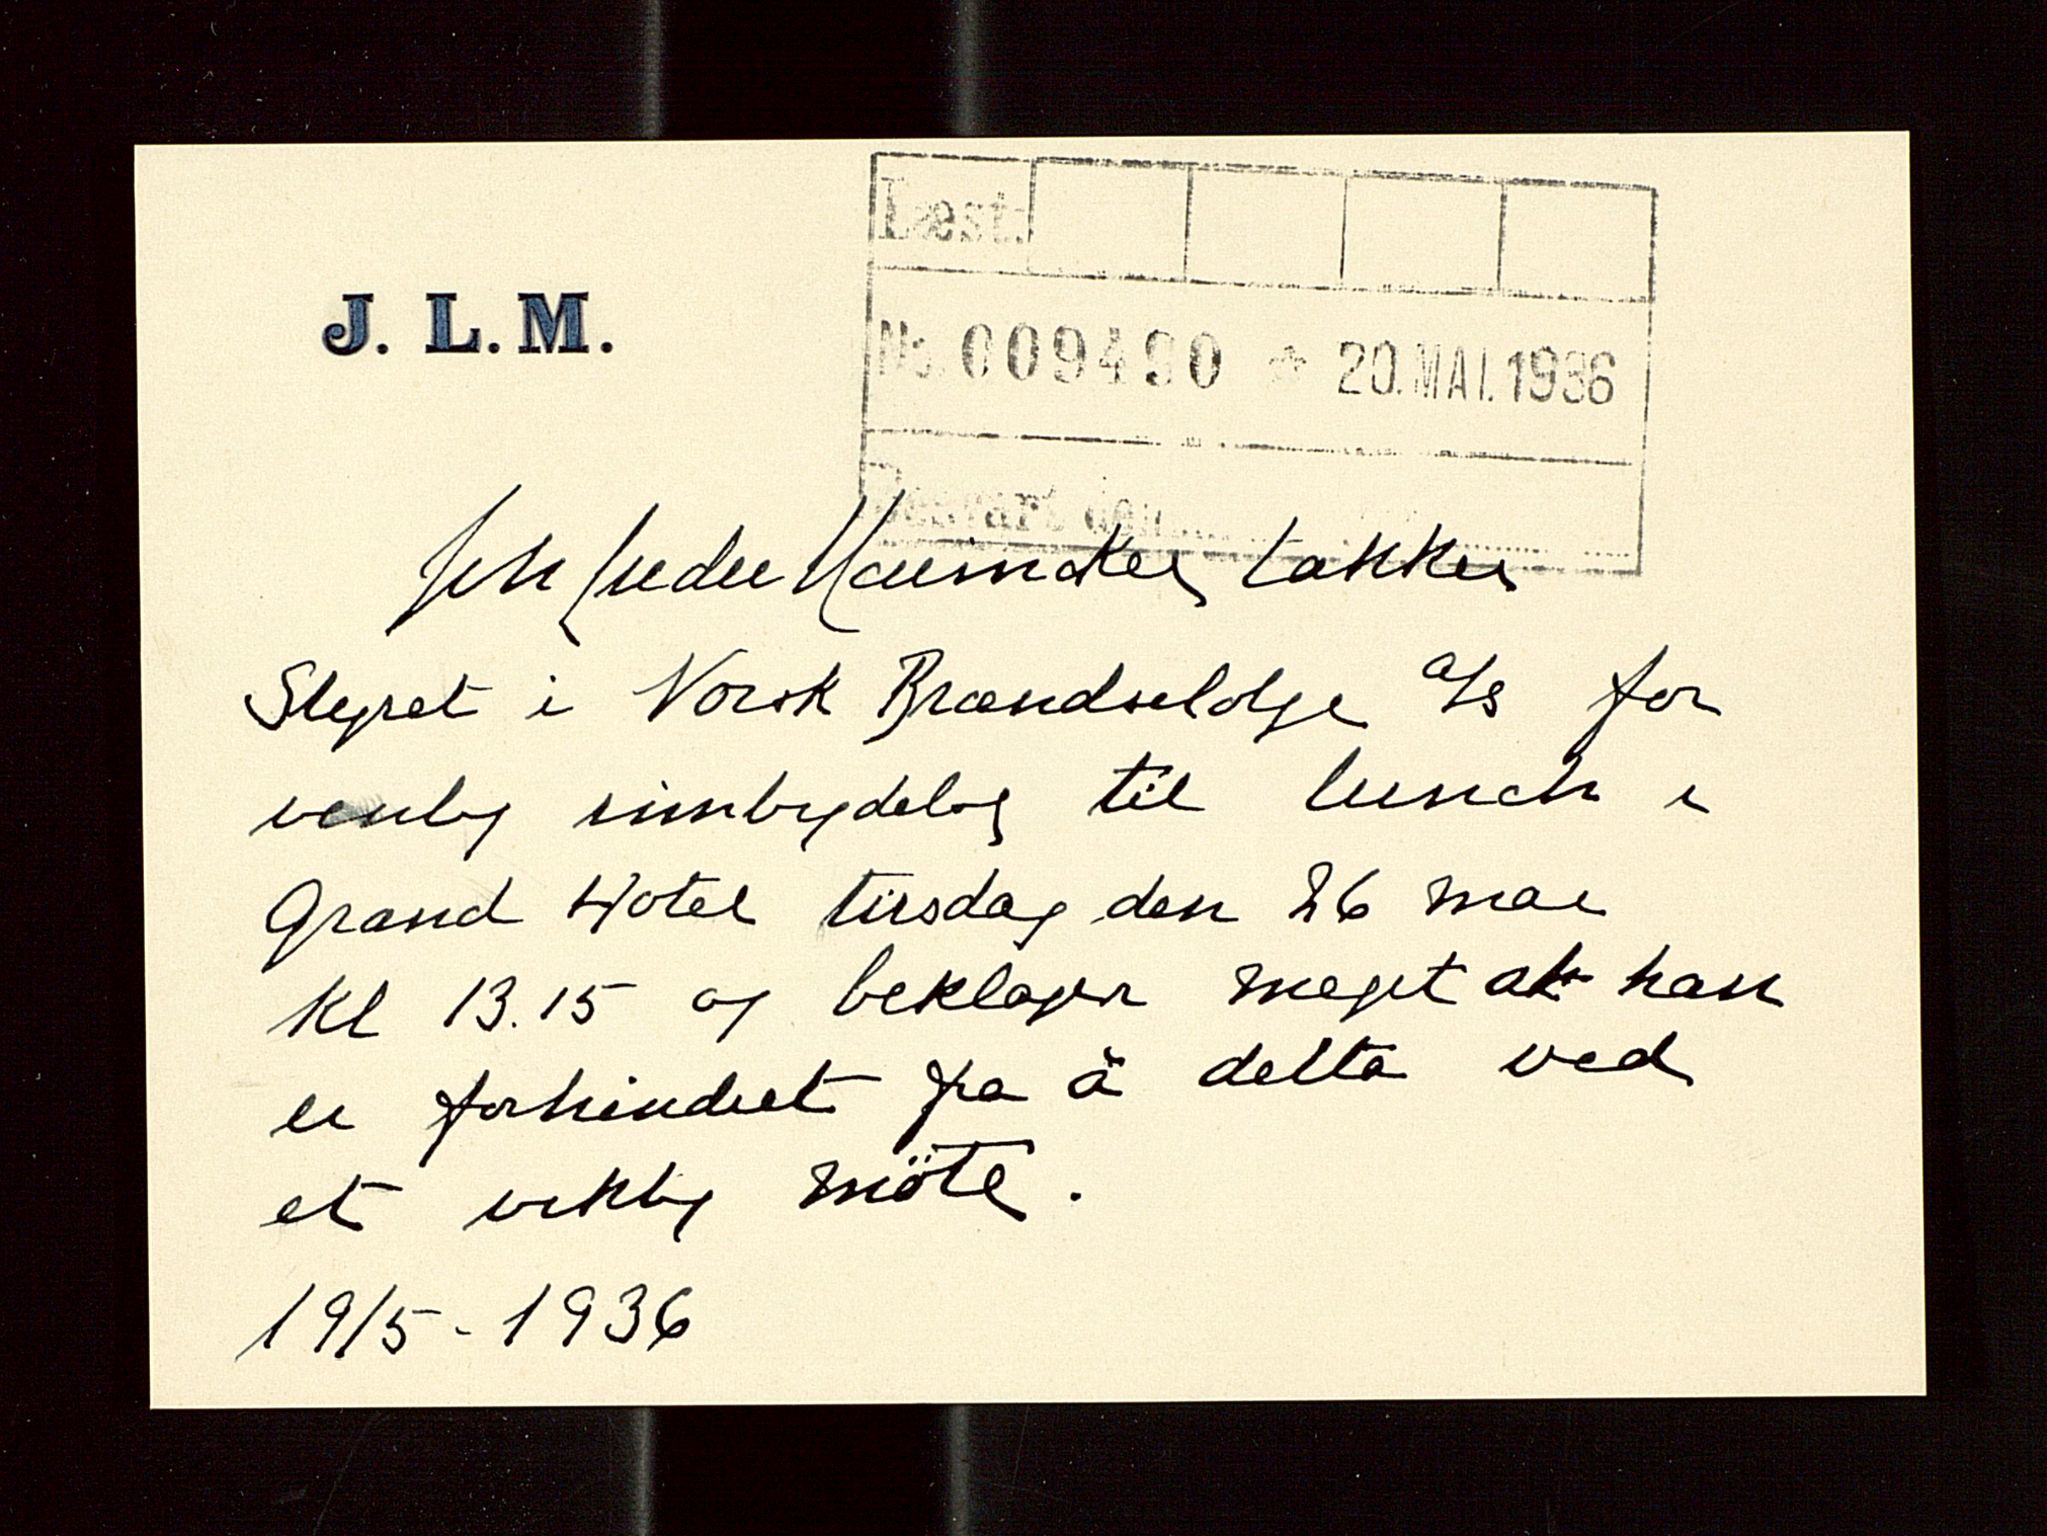 J. L. M.
Læst:
No. 009490 * 20. MAI. 1936
Besvart den
Joh Ludw Mowinckel takker
Styret i Norsk Brændselolje a/s for
venlig innbydelse til lunch i
Grand Hotel tirsdag den 26 mai
Kl 13.15 og beklager meget at han
er forhindret fra å delta ved
et viktig möte.
19/5 - 1936